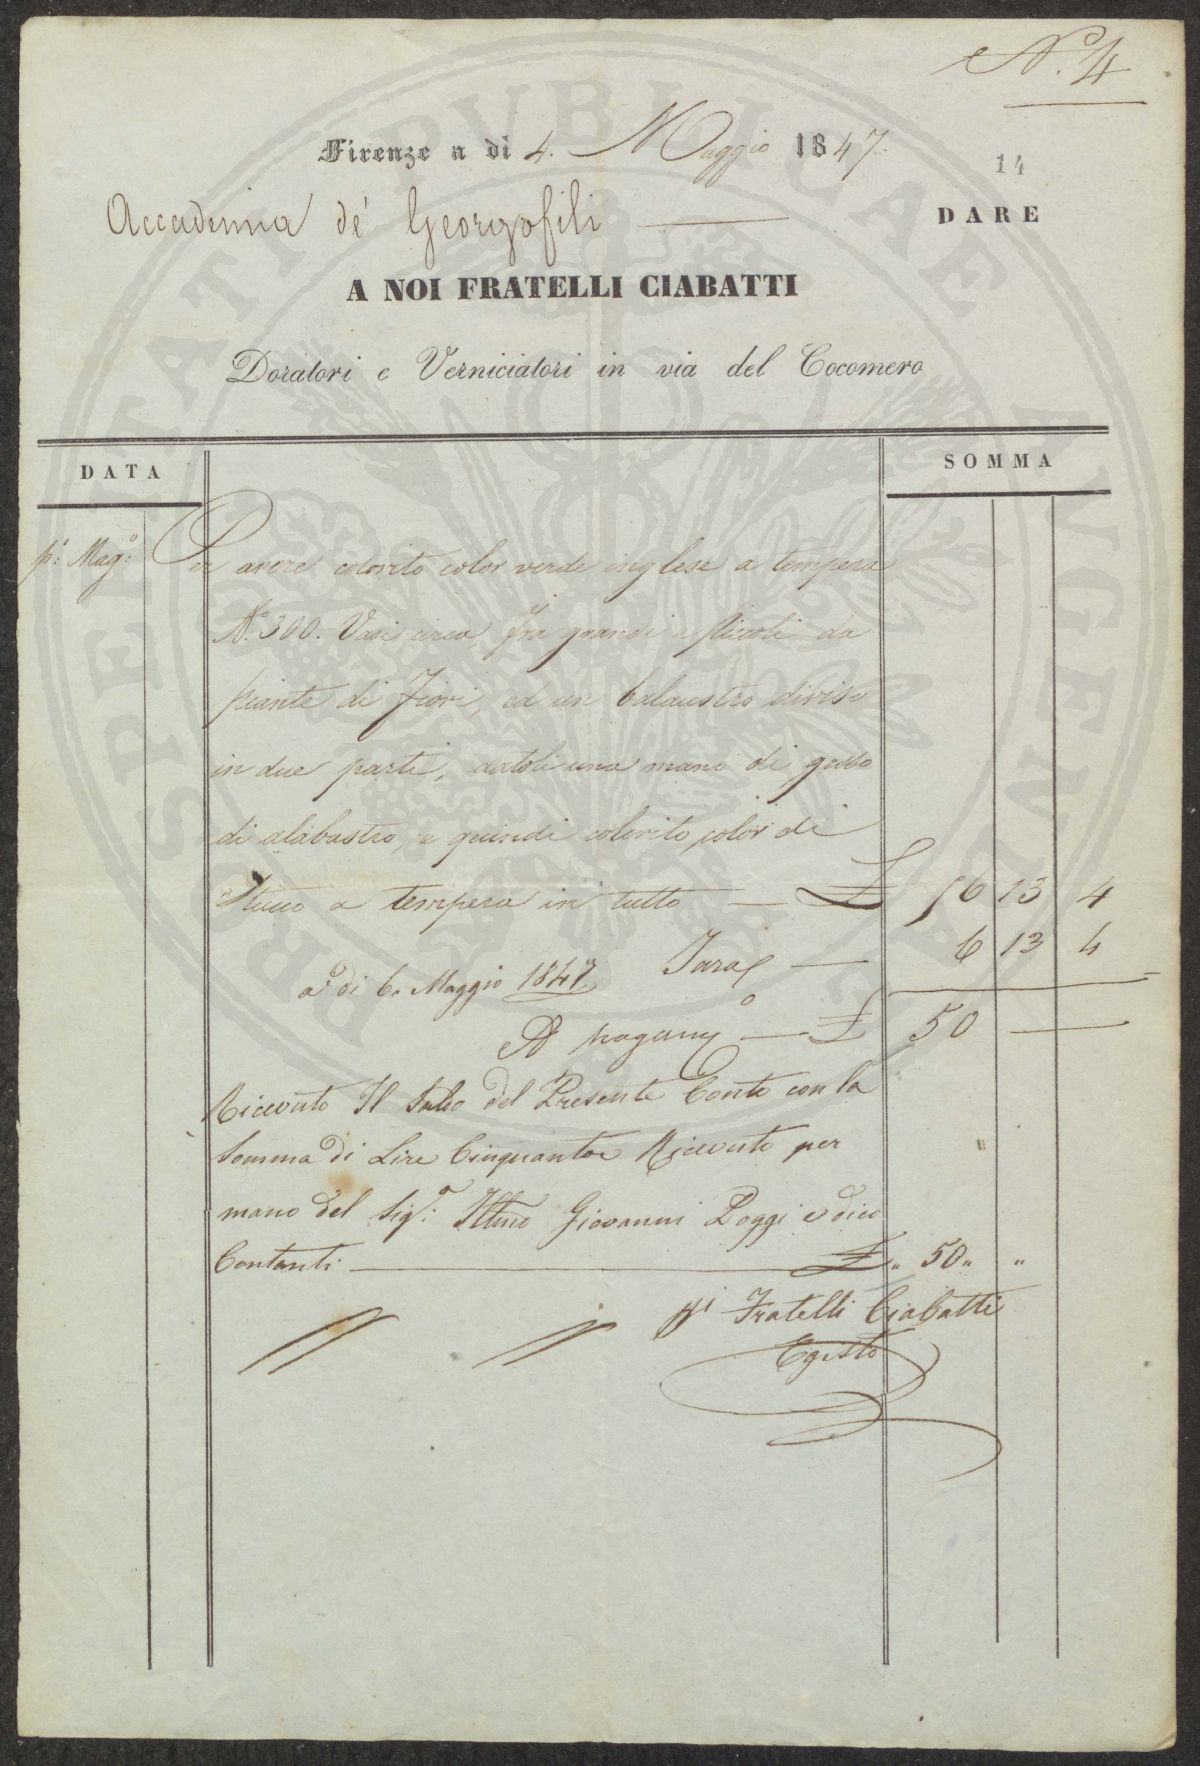 N.º 4
Firenze a dì 4. Maggio 1847.
14
Accademia de' Georgofili
DARE
A NOI FRATELLI CIABATTI
Doratori e Verniciatori in via del Cocomero
DATA
SOMMA
p.º Mag.º Per avere colorito color verde inglese a tempera
N.º 300. Vasi circa, fra grandi e piccoli da
piante di Fiori, ed un balaustro diviso
in due parti, datoli una mano di gesso
di alabastro, e quindi colorito color di
Stucco a tempera in tutto £ 56 13 4
Tara 6 13 4
a dì 6. Maggio 1847
£ 50
Ricevuto Il Saldo del Presente Conto con la
Somma di Lire Cinquanta Ricevuto per
mano del Sig.r Giovanni Poggi e dico
Contanti £ " 50 " "
Fratelli Ciabatti
Egisto
PVBLICAE
PROSPERITATI
AVGENDAE